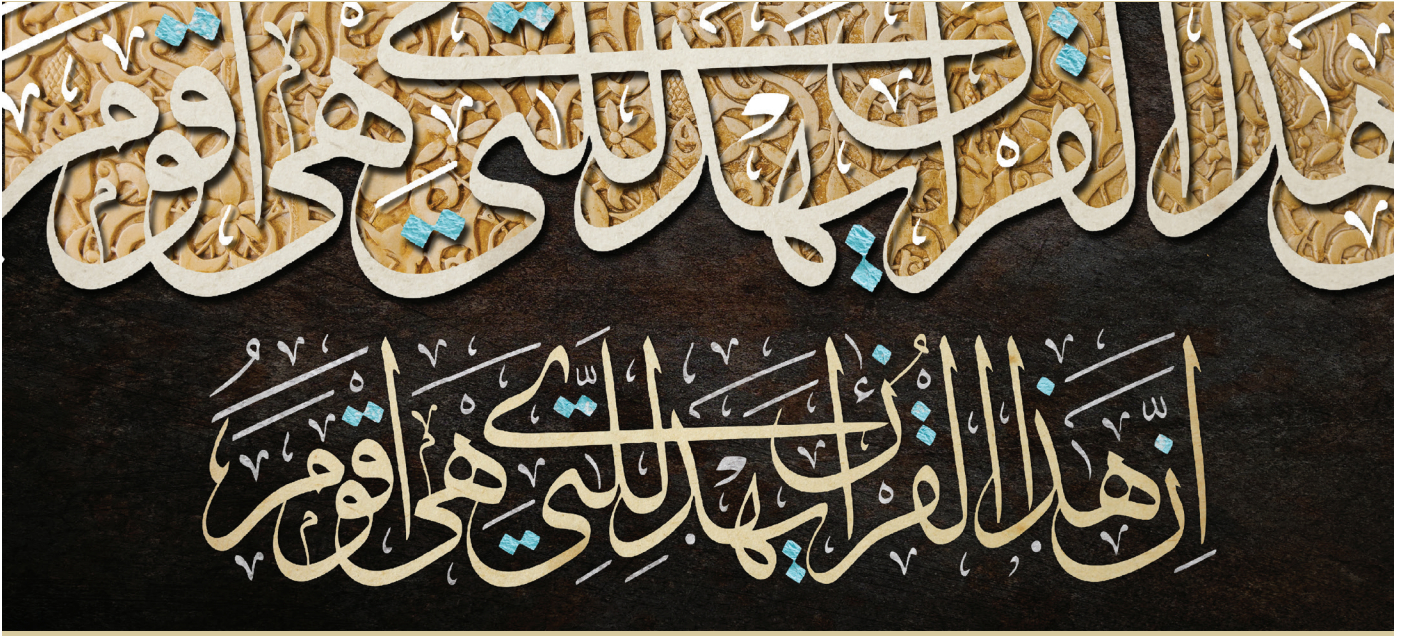 هذا القرآن يهدي للتي هي أقوم
إِنَّ هَٰذَا الْقُرْآنَ يَهْدِي لِلَّتِي هِيَ أَقْوَمُ